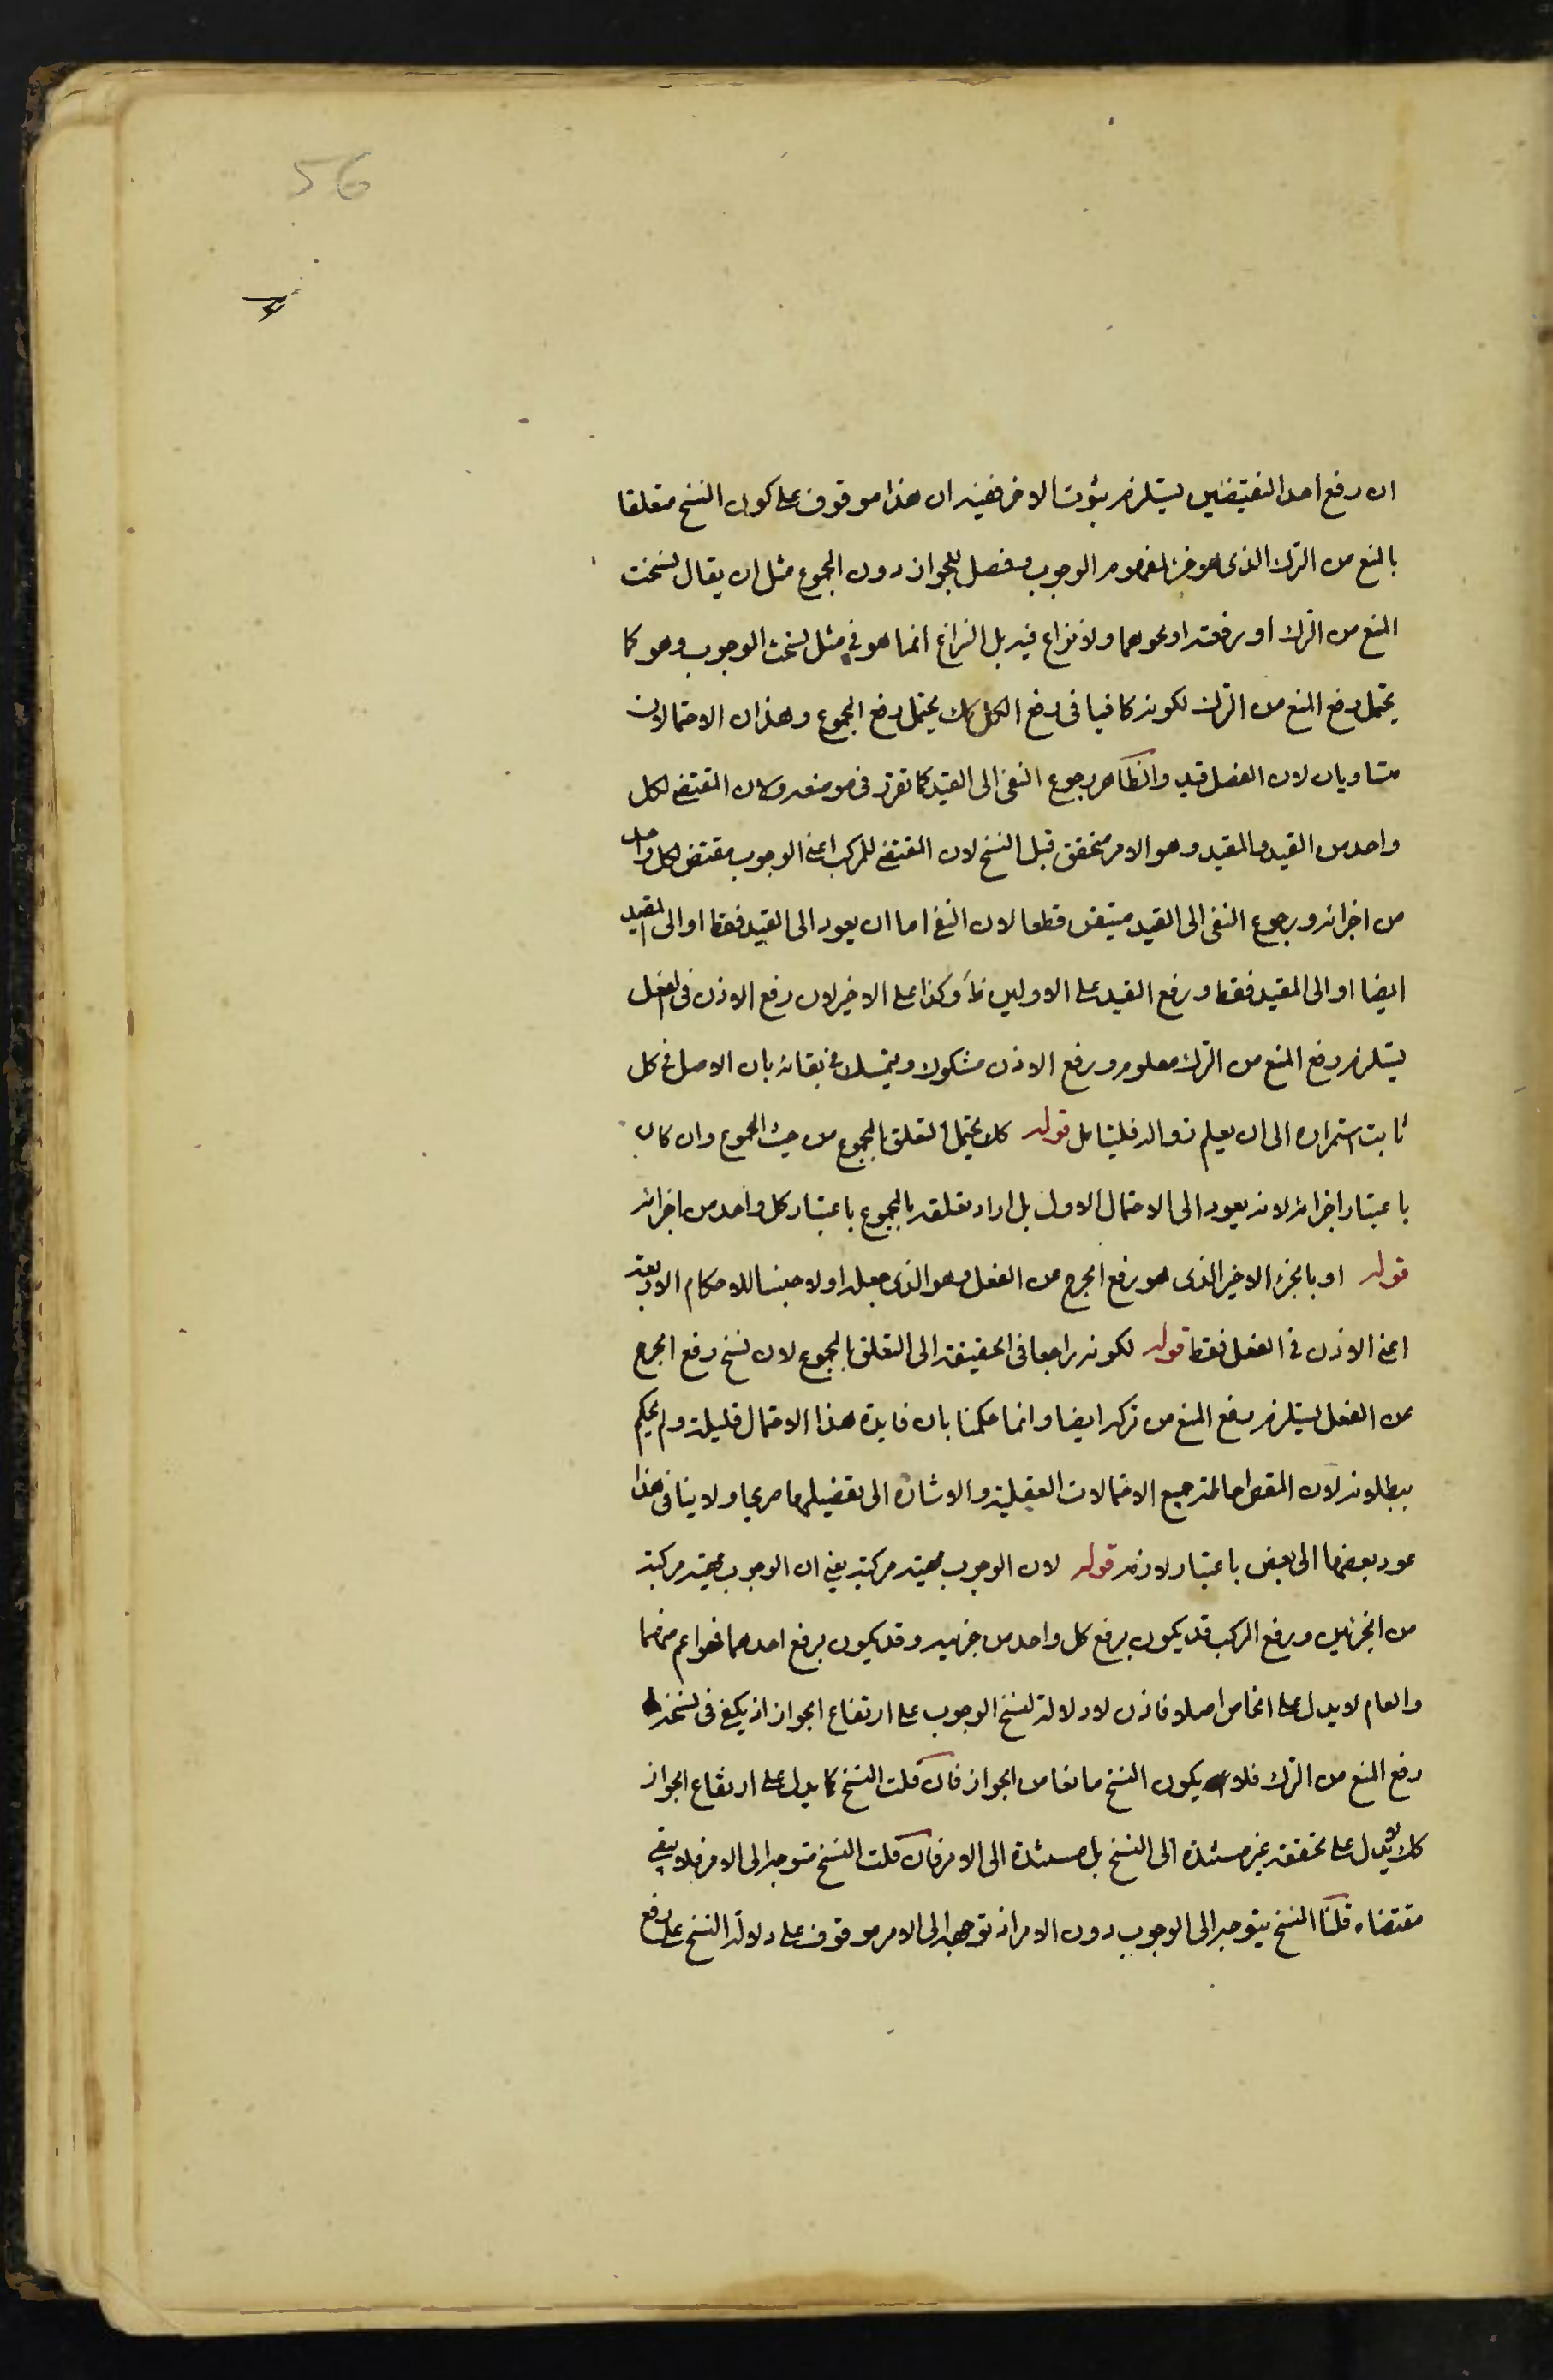 56
ان رفع احد النقيضين يستلزم ثبوت الاخر ففيه ان هذا موقوف على كون النسخ متعلقا
بالمنع من الترك الذى هو جزء لمفهوم الوجوب وفصل للجواز دون المجموع مثل ان يقال نسخت
المنع من الترك او رفعته او نحوهما ولا نزاع فيه بل النزاع انما هو فى مثل نسخت الوجوب وهو كما
يحتمل رفع المنع من الترك لكونه كافيا فى رفع الكل كك يحتمل رفع المجموع وهذان الاحتمالان
متساويان لان الفصل قيد والظاهر رجوع النفى الى القيد كما تقرر فى موضعه ولان المقتضى لكل
واحد من القيد والمقيد وهو الامر متحقق قبل النسخ لان المقتضى للمركب اعنى الوجوب مقتض لكل واحد
من اجزائه ورجوع النفى الى القيد متيقن قطعا لان النفى اما ان يعود الى القيد فقط او الى المقيد
ايضا او الى المقيد فقط ورفع القيد على الاولين ظ وكذا على الاخير لان رفع الاذن فى الفعل
يستلزم رفع المنع من الترك معلوم ورفع الاذن مشكوك ويتمسك فى بقائه بان الاصل فى كل
ثابت استمراره الى ان يعلم زواله فليتامل قوله كك يحتمل التعلق بالمجموع من حيث المجموع وان كان
باعتبار اجزائه لانه يعود الى الاحتمال الاول بل اراد تعلقه بالمجموع باعتبار كل واحد من اجزائه
قوله او بالجزء الاخير الذى هو رفع الحرج عن الفعل وهو الذى جعله اولا جنسا للاحكام الاربعة
اعنى الاذن فى الفعل فقط قوله لكونه راجعا فى الحقيقة الى التعلق بالمجموع لان نسخ رفع الحرج
عن الفعل يستلزم رفع المنع من تركه ايضا وانما حكمنا بان فايدة هذا الاحتمال قليلة ولم يحكم
ببطلانه لان المقص احاطة جميع الاحتمالات العقلية والاشارة الى تفصيلها صريحا ولا ينافى هذا
عود بعضها الى بعض باعتبار لازمه قوله لان الوجوب مهية مركبة يعنى ان الوجوب مهية مركبة
من الجزئين ورفع المركب قد يكون برفع كل واحد من جزئيه وقد يكون برفع احدهما فهو اعم منهما
والعام لا يدل على الخاص اصلا فاذن لا دلالة لنسخ الوجوب على ارتفاع الجواز اذ يكفى فى نسخه
رفع المنع من الترك فلا يكون النسخ مانعا من الجواز فان قلت النسخ كما يدل على ارتفاع الجواز
كك لا يدل على تحققه غير مستندة الى النسخ بل مستندة الى الامر فان قلت النسخ متوجه الى الامر فلا يبقى
مقتضاه قلنا النسخ يتوجه الى الوجوب دون الامر اذ توجهه الى الامر موقوف على دلالة النسخ على رفع